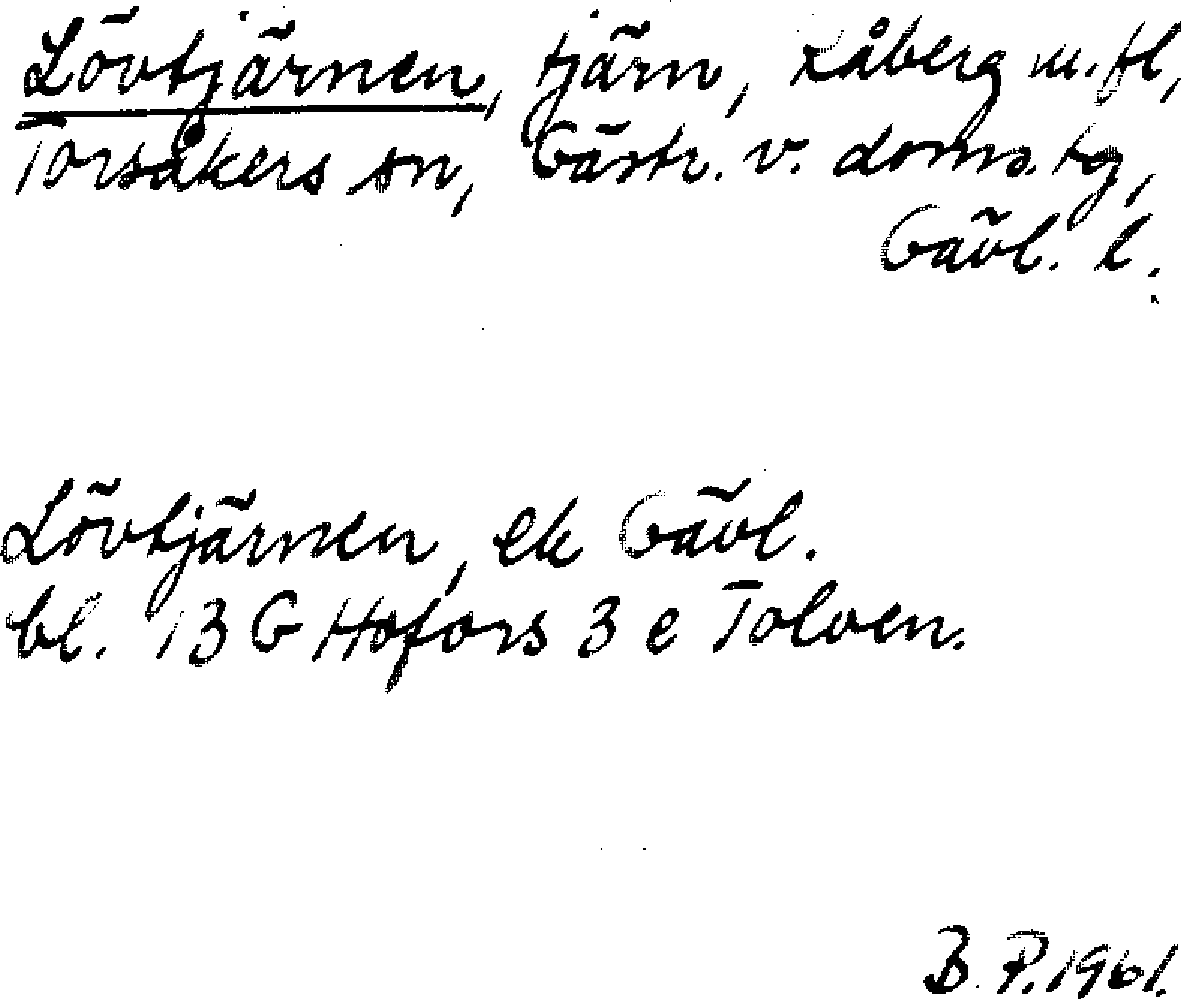 Lövtjärnen, tjärn, Kåberg m.fl,
Torsåkers sn, Gästr. v. doms.tg,
Gävl. l.
Lövtjärnen, ek Gävl.
bl. 13 G Hofors 3 e Tolven.
B. P. 1961.